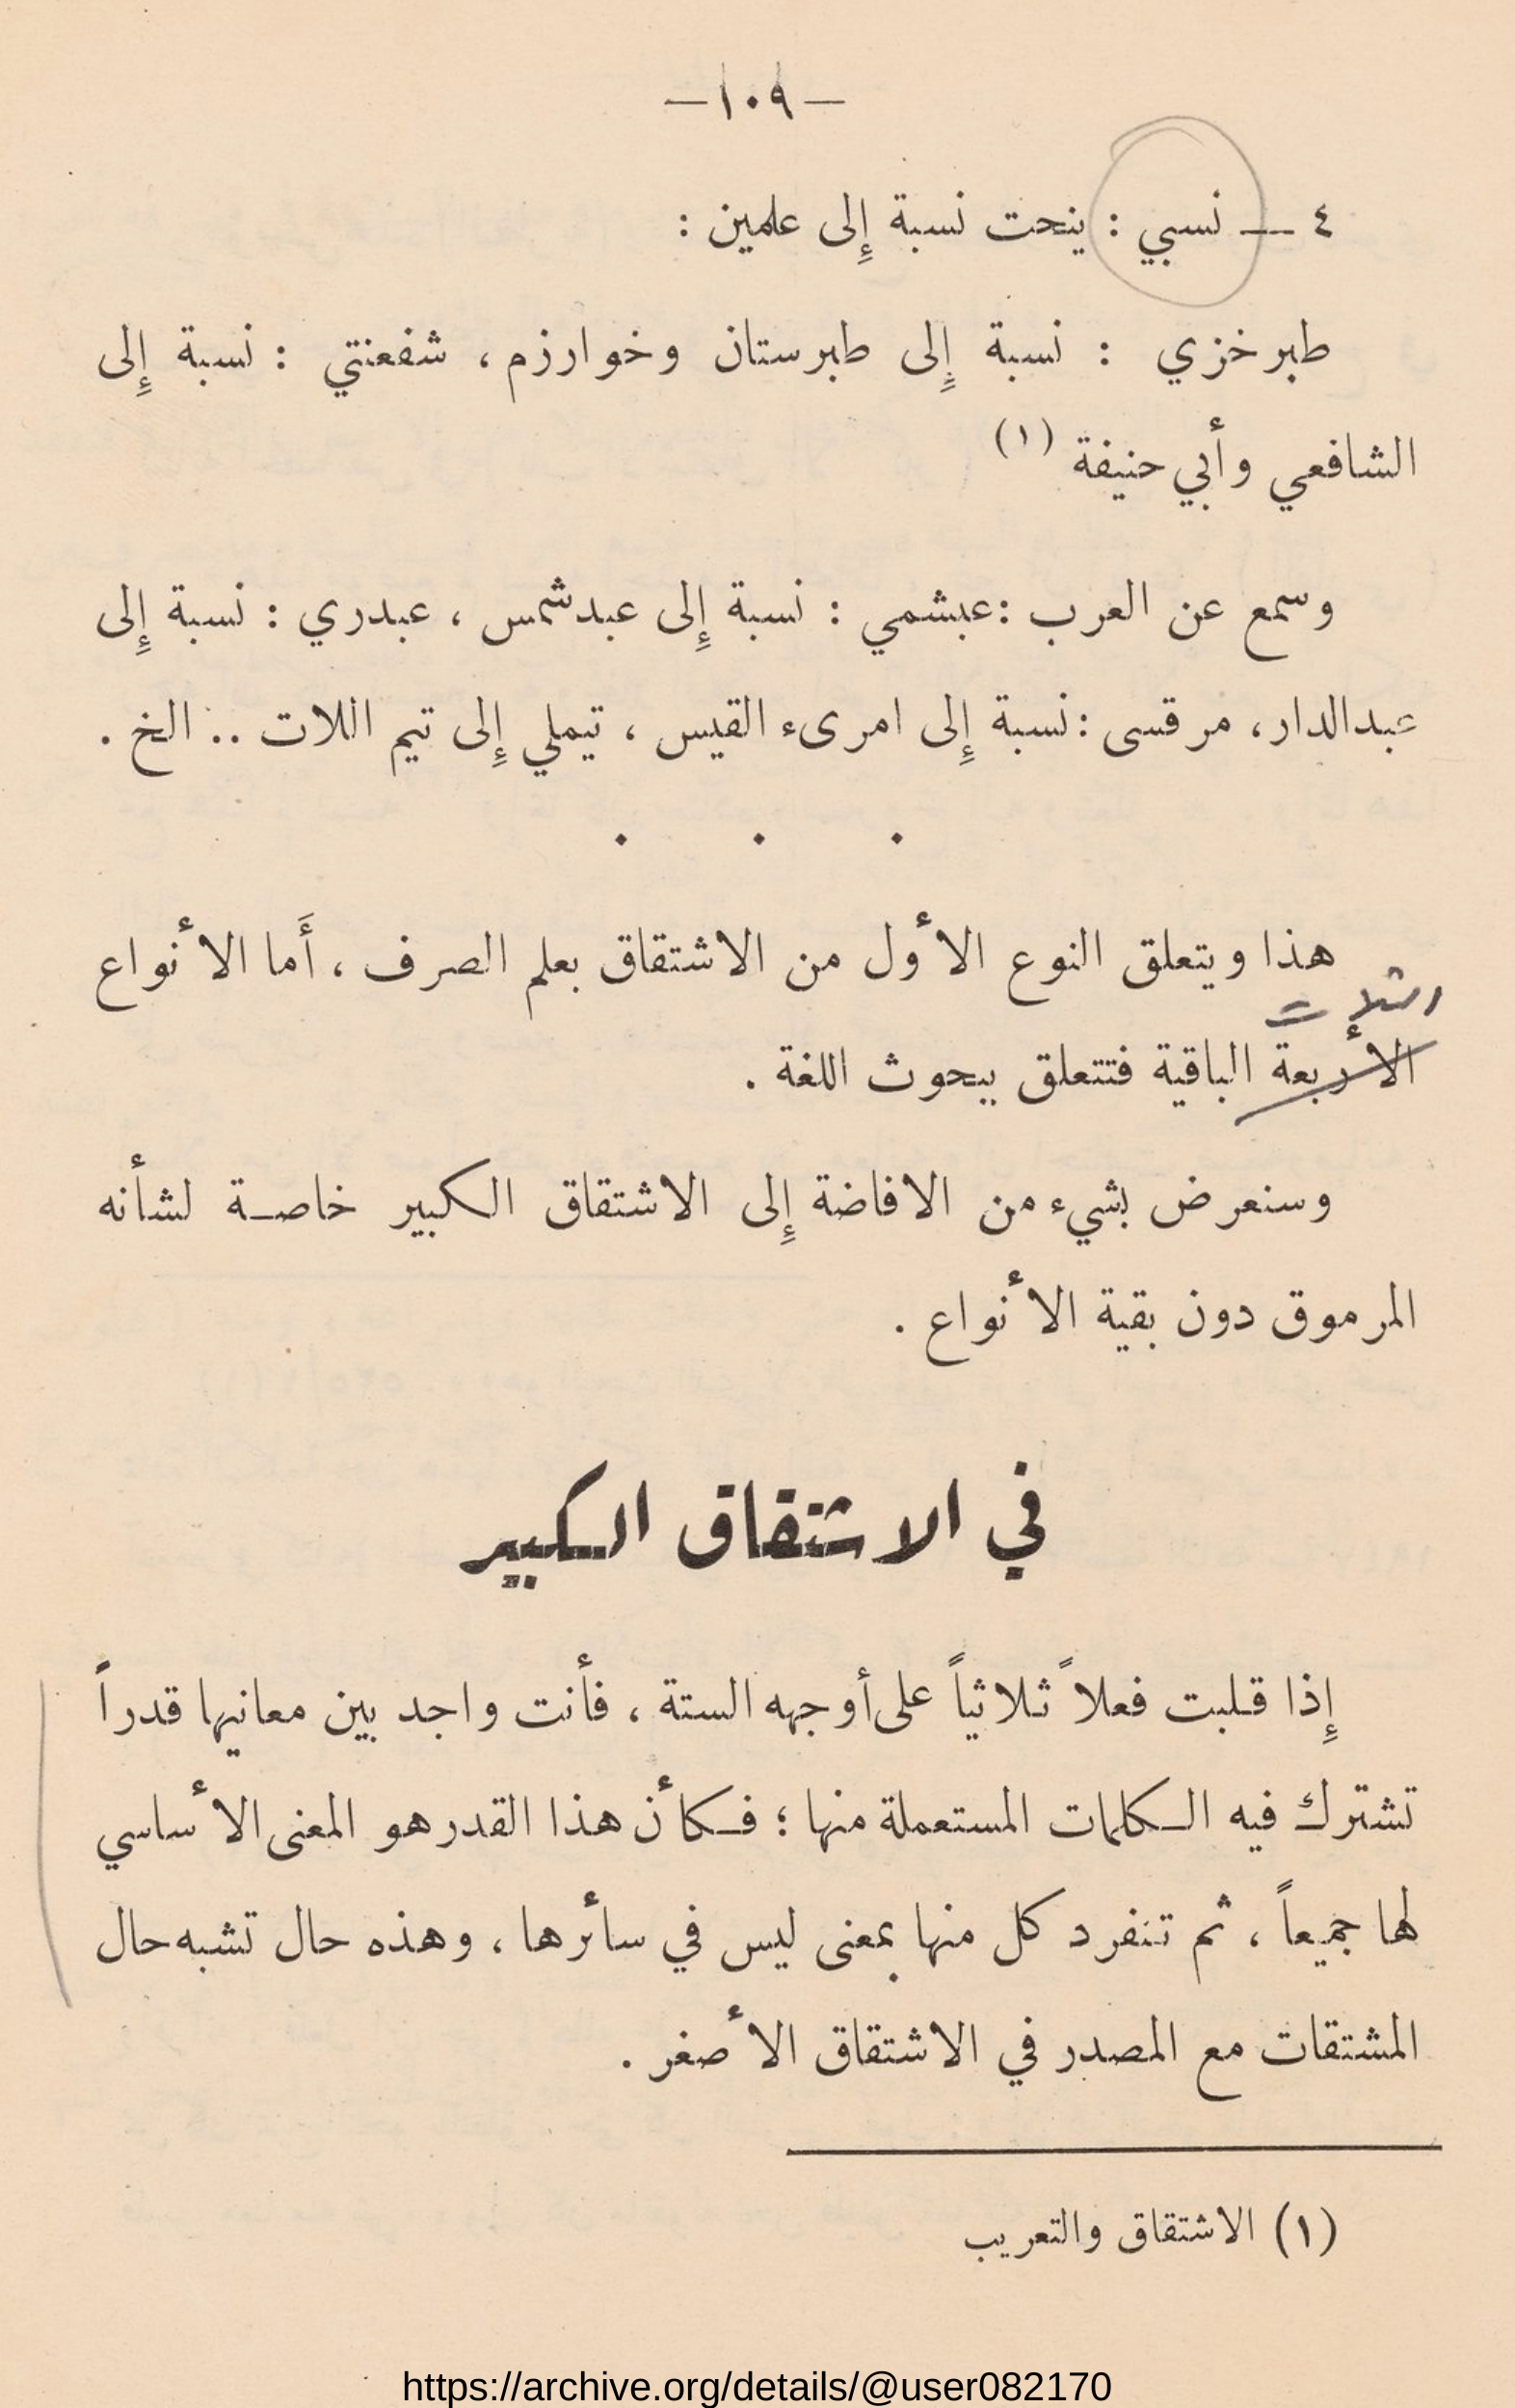 —١٠٩—
٤ — نسبي : ينحت نسبة إِلى علمين :
طبرخزي : نسبة إِلى طبرستان وخوارزم ، شفعنتي : نسبة إِلى
الشافعي وأبي حنيفة (١)
وسمع عن العرب : عبشمي : نسبة إِلى عبدشمس ، عبدري : نسبة إِلى
عبدالدار، مرقسى : نسبة إِلى امرىء القيس ، تيملي إِلى تيم اللات .. الخ .
. . .
هذا ويتعلق النوع الأول من الاشتقاق بعلم الصرف ، أَما الأنواع
الثلاث
الأربعة الباقية فتتعلق ببحوث اللغة .
وسنعرض بشيء من الافاضة إِلى الاشتقاق الكبير خاصـة لشأنه
المرموق دون بقية الأنواع .
في الاشتقاق الكبير
إِذا قلبت فعلاً ثلاثياً على أوجهه الستة ، فأنت واجد بين معانيها قدراً
تشترك فيه الكلمات المستعملة منها ؛ فكأن هذا القدر هو المعنى الأساسي
لها جميعاً ، ثم تنفرد كل منها بمعنى ليس في سائرها ، وهذه حال تشبه حال
المشتقات مع المصدر في الاشتقاق الأصغر .
(١) الاشتقاق والتعريب
https://archive.org/details/@user082170